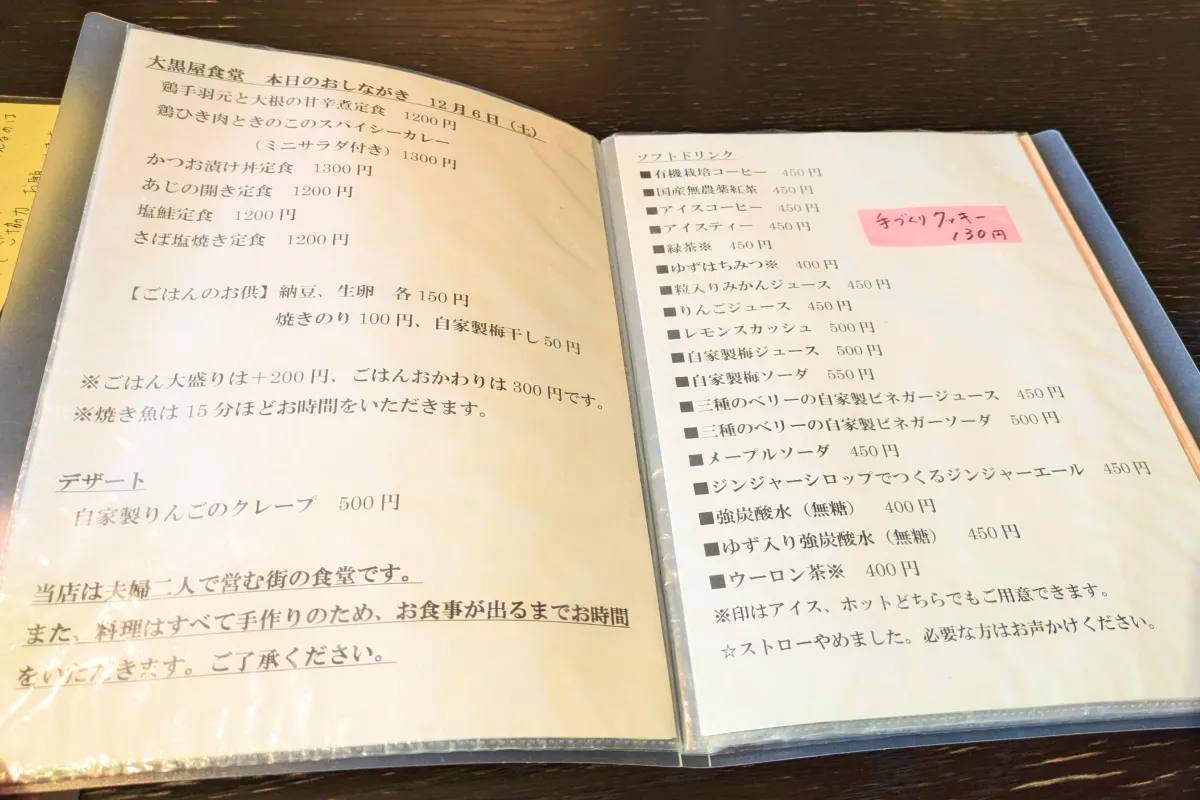 大黒屋食堂　本日のおしながき　12月6日（土）
鶏手羽元と大根の甘辛煮定食　1200円
鶏ひき肉ときのこのスパイシーカレー
（ミニサラダ付き）1300円
かつお漬け丼定食　1300円
あじの開き定食　1200円
塩鮭定食　1200円
さば塩焼き定食　1200円
【ごはんのお供】納豆、生卵　各150円
焼きのり100円、自家製梅干し50円
※ごはん大盛りは＋200円、ごはんおかわりは300円です。
※焼き魚は15分ほどお時間をいただきます。
デザート
自家製りんごのクレープ　500円
当店は夫婦二人で営む街の食堂です。
また、料理はすべて手作りのため、お食事が出るまでお時間
をいただきます。ご了承ください。
ソフトドリンク
■有機栽培コーヒー　450円
■国産無農薬紅茶　450円
■アイスコーヒー　450円
■アイスティー　450円
■緑茶※　450円
■ゆずはちみつ※　400円
■粒入りみかんジュース　450円
■りんごジュース　450円
■レモンスカッシュ　500円
■自家製梅ジュース　500円
■自家製梅ソーダ　550円
■三種のベリーの自家製ビネガージュース　450円
■三種のベリーの自家製ビネガーソーダ　500円
■メープルソーダ　450円
■ジンジャーシロップでつくるジンジャーエール　450円
■強炭酸水（無糖）　400円
■ゆず入り強炭酸水（無糖）　450円
■ウーロン茶※　400円
※印はアイス、ホットどちらでもご用意できます。
☆ストローやめました。必要な方はお声かけください。
手づくりクッキー
130円
ご協力 お願